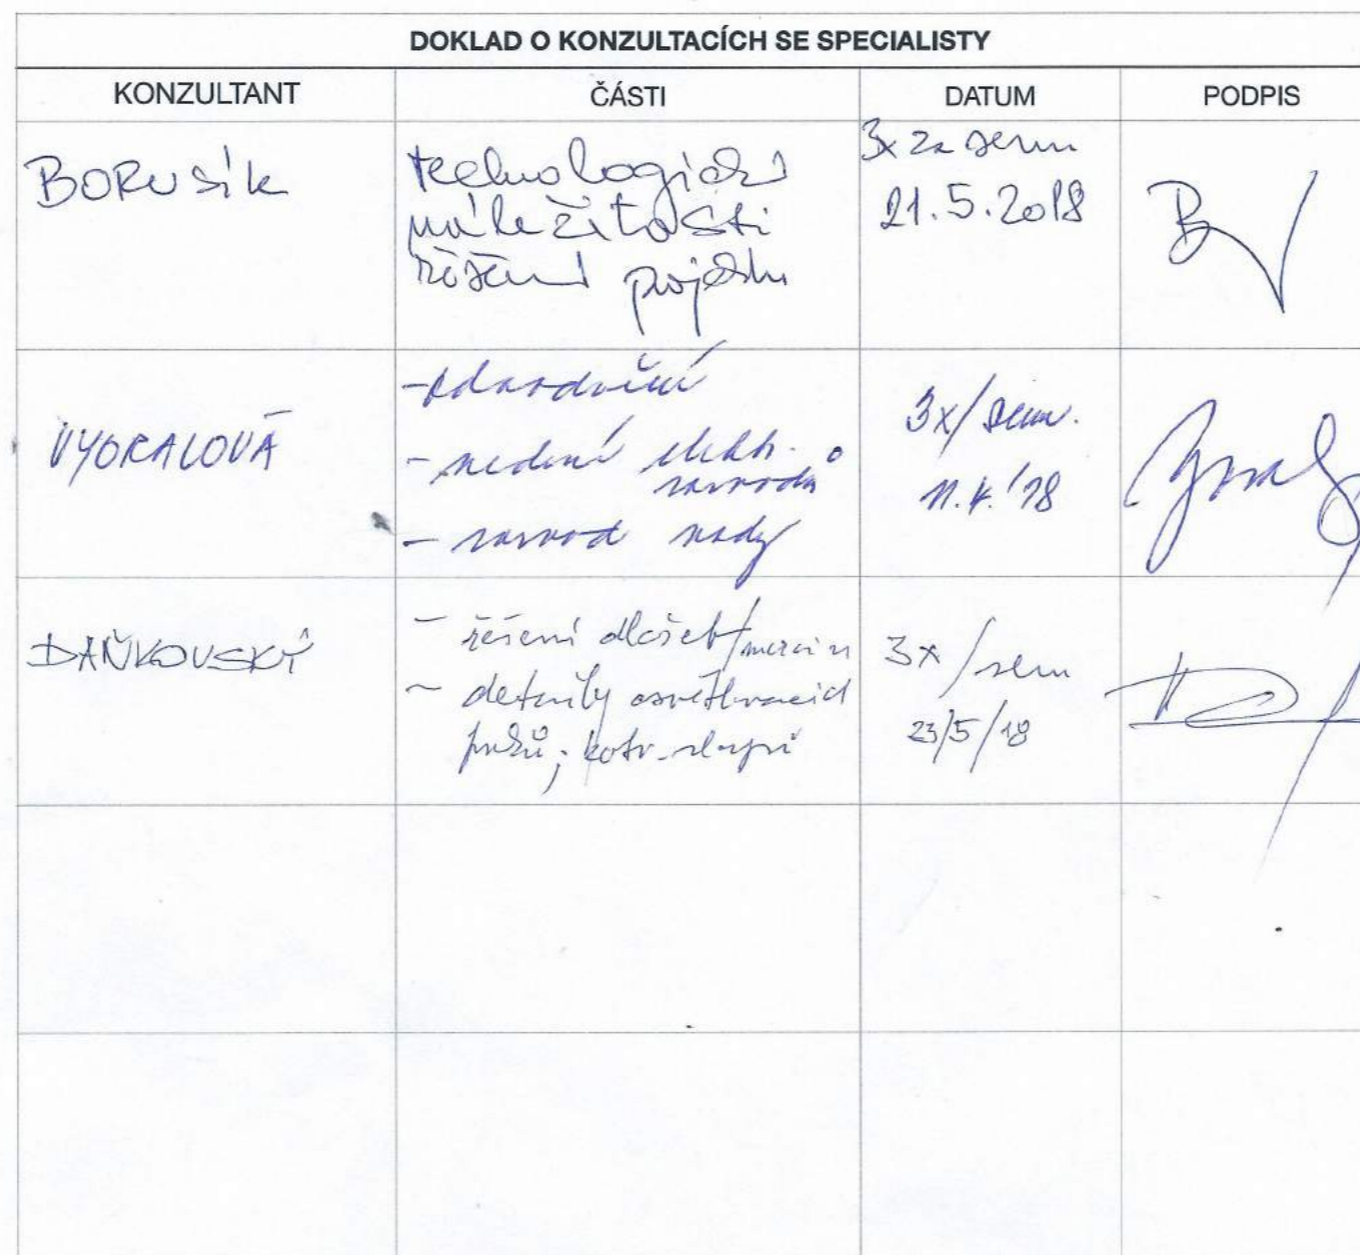 DOKLAD O KONZULTACÍCH SE SPECIALISTY
KONZULTANT ČÁSTI DATUM PODPIS
BORUSÍK
technologické
náležitosti
řešení projektu
3x za sem
21.5.2018
VYORALOVÁ
- odvodnění
- vedení elektr.
rozvodů
- rozvod vody
3x/sem.
DAŇKOVSKÝ
- řešení dlažeb/
- detaily osvětlovacích
3x/sem
23/5/18